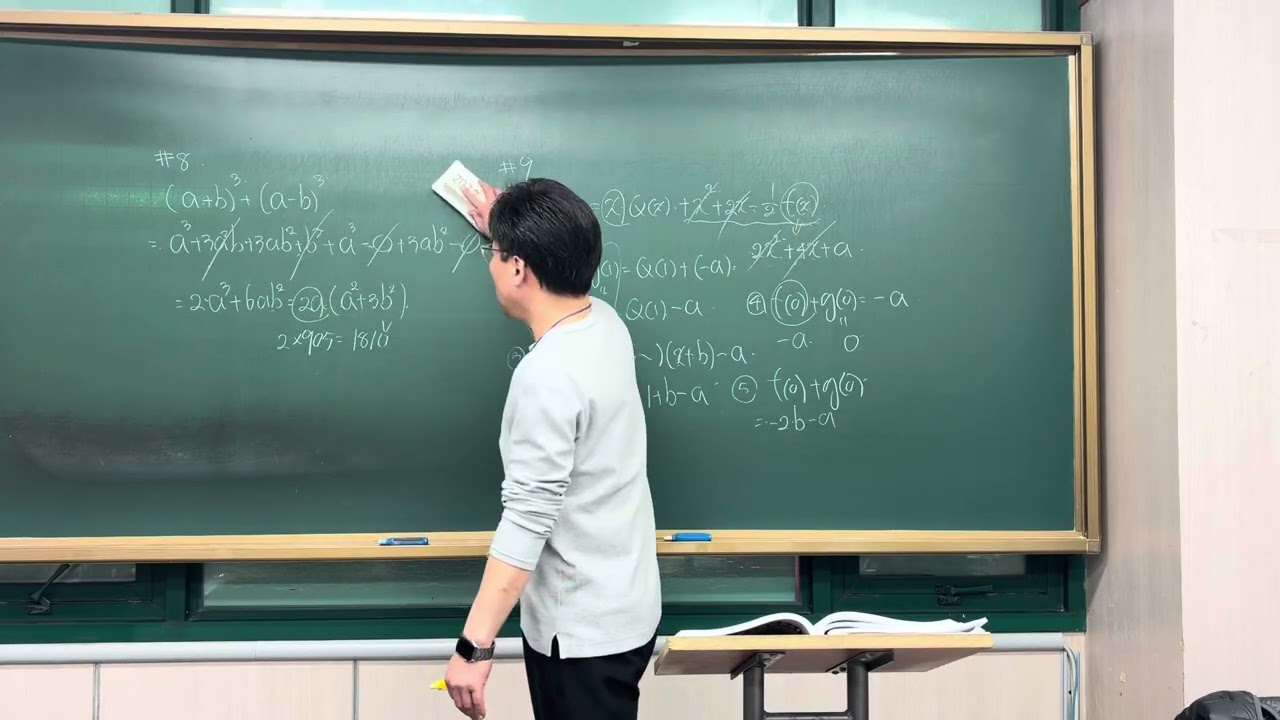 #8.
(a+b)³+(a-b)³
= a³+3a²b+3ab²+b³+a³-
+3ab²-
=2a³+6ab²=2a(a²+3b²).
2×905=1810
#9
=xQ(x)+x²+2x=½f(x)
2x²+4x+a.
(1)=Q(1)+(-a).
Q(1)-a.
④ f(0)+g(0)=-a
-a. 0
)(x+b)-a.
1+b-a
⑤ f(0)+g(0)
=-2b-a